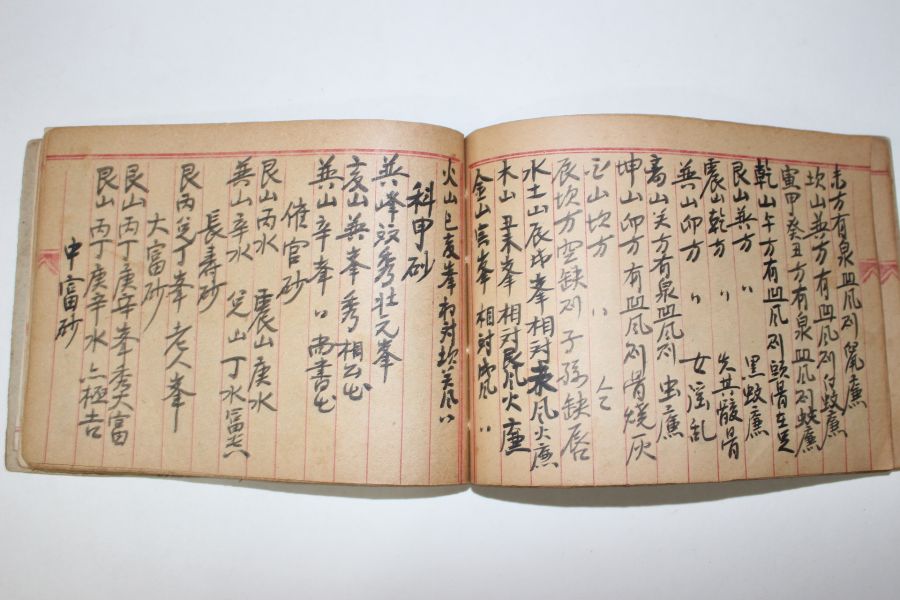 未方有泉凹风則鼠廉
坎山巽方有凹风則白蚊廉
寅甲癸丑方有泉凹风則蚊廉
乾山午方有凹风則頭骨左足
艮山巽方〃黑蚊廉
震山乾方〃失其骸骨
巽山卯方〃女淫乱
离山关方有泉凹风則虫廉
坤山卯方有凹风則骨燒灰
山坎方〃仝
辰坎方空缺則子孫缺唇
水土山辰戌峯相对来风火廉
木山丑未峯相对艮风火廉
金山峯相对风〃
火山巳亥峯相对坎关风〃
科甲砂
巽峯秀壮元峯
亥山巽峯秀相公出
巽山辛峯〃尚書出
催官砂
艮山丙水震山庚水
巽山辛水兌山丁水富吉
長寿砂
艮丙兌丁峯老人峯
大富砂
艮山丙丁庚辛峯秀大富
艮山丙丁庚辛水亦極吉
中富砂